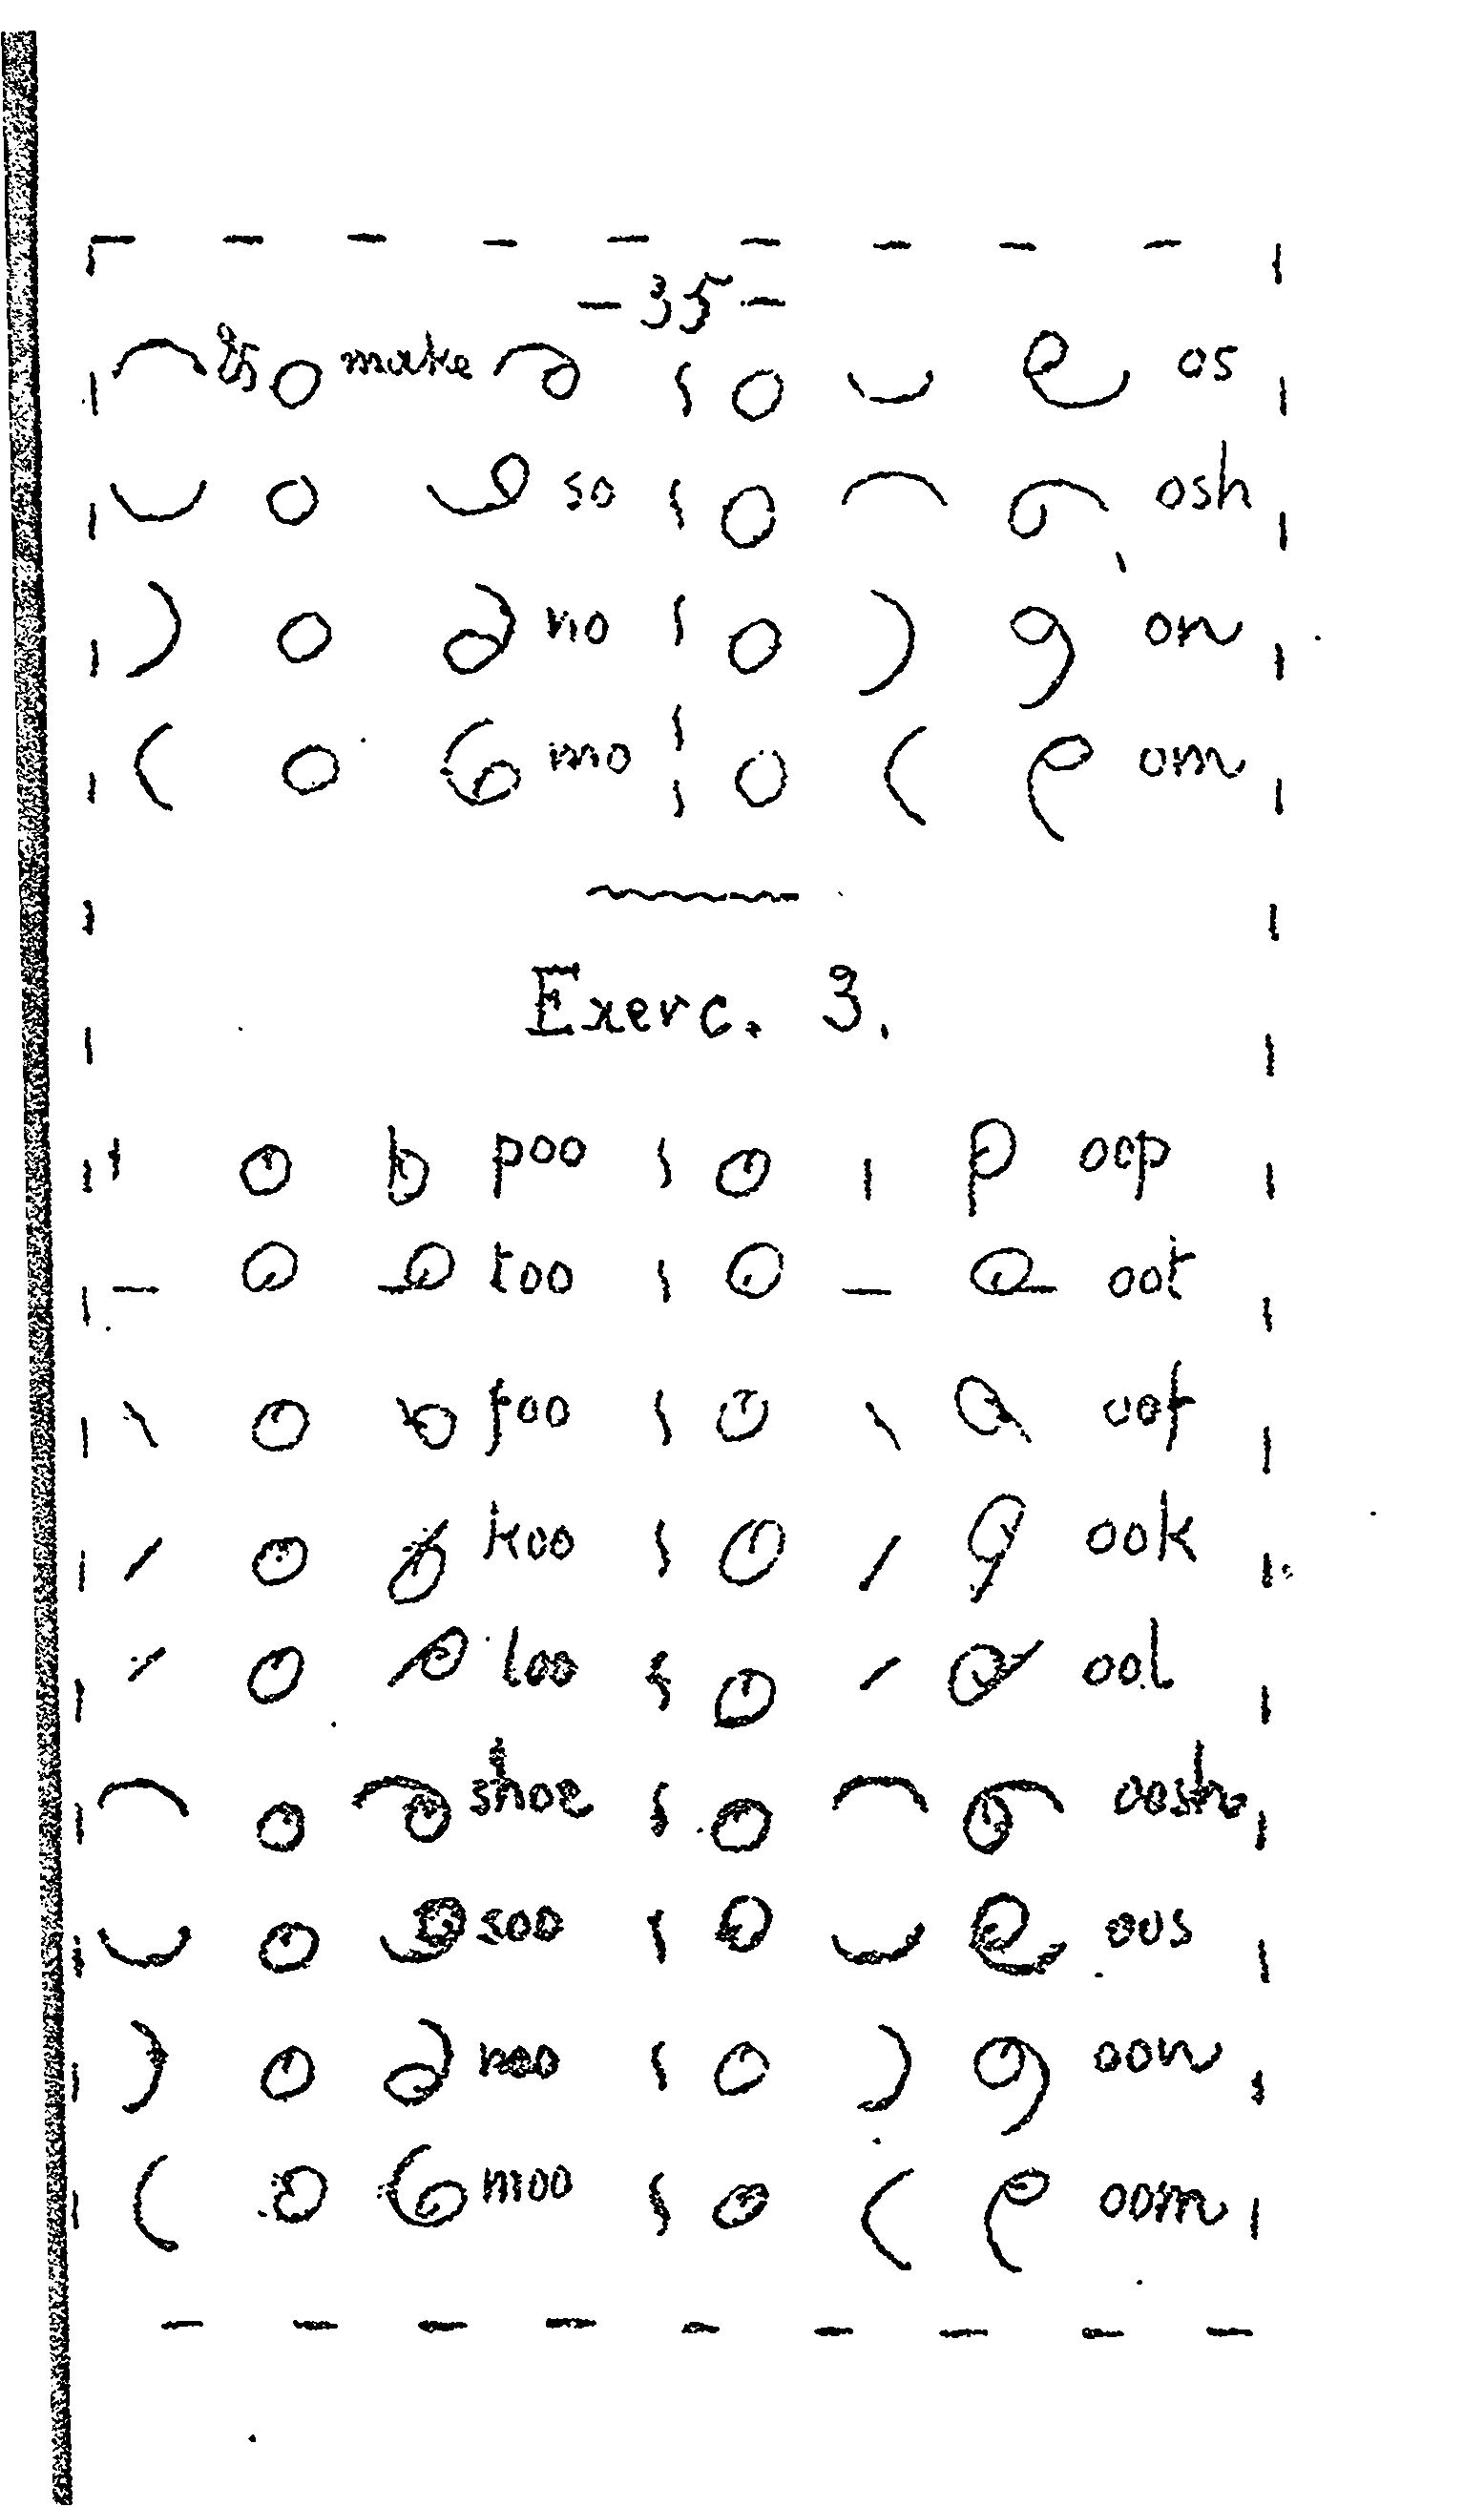 - 35 -
& make os
so osh
no on
mo om
Exerc. 3.
poo oop
too oot
foo oof
koo ook
loo ool
shoe oosh
soo oos
noo oon
moo oom